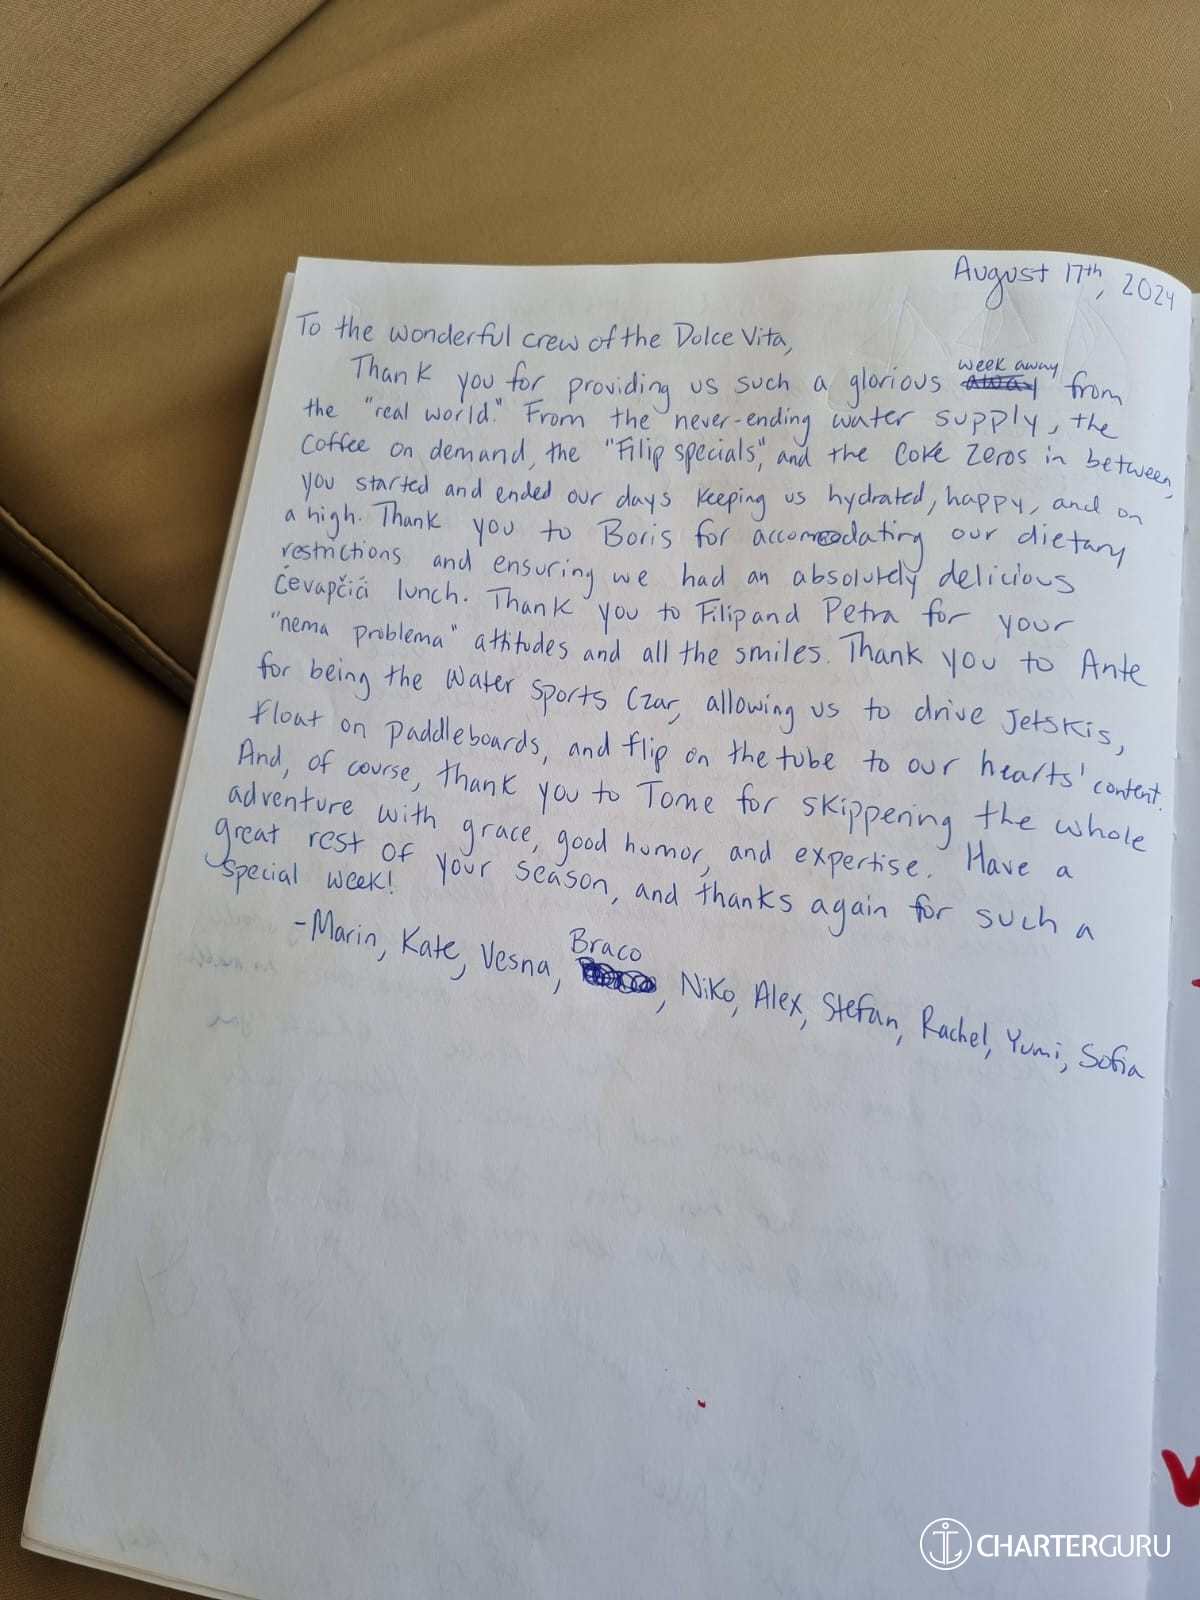 August 17th, 2024
To the wonderful crew of the Dolce Vita,
Thank you for providing us such a glorious week away from
the "real world." From the never-ending water supply, the
coffee on demand, the "Filip specials", and the Coke Zeros in between,
you started and ended our days keeping us hydrated, happy, and on
a high. Thank you to Boris for accomodating our dietary
restrictions and ensuring we had an absolutely delicious
ćevapčići lunch. Thank you to Filip and Petra for your
"nema problema" attitudes and all the smiles. Thank you to Ante
for being the Water Sports Czar, allowing us to drive jetskis,
float on paddleboards, and flip on the tube to our hearts' content.
And, of course, thank you to Tome for skippering the whole
adventure with grace, good humor, and expertise. Have a
great rest of your season, and thanks again for such a
special week!
-Marin, Kate, Vesna, Braco, Niko, Alex, Stefan, Rachel, Yumi, Sofia
CHARTERGURU